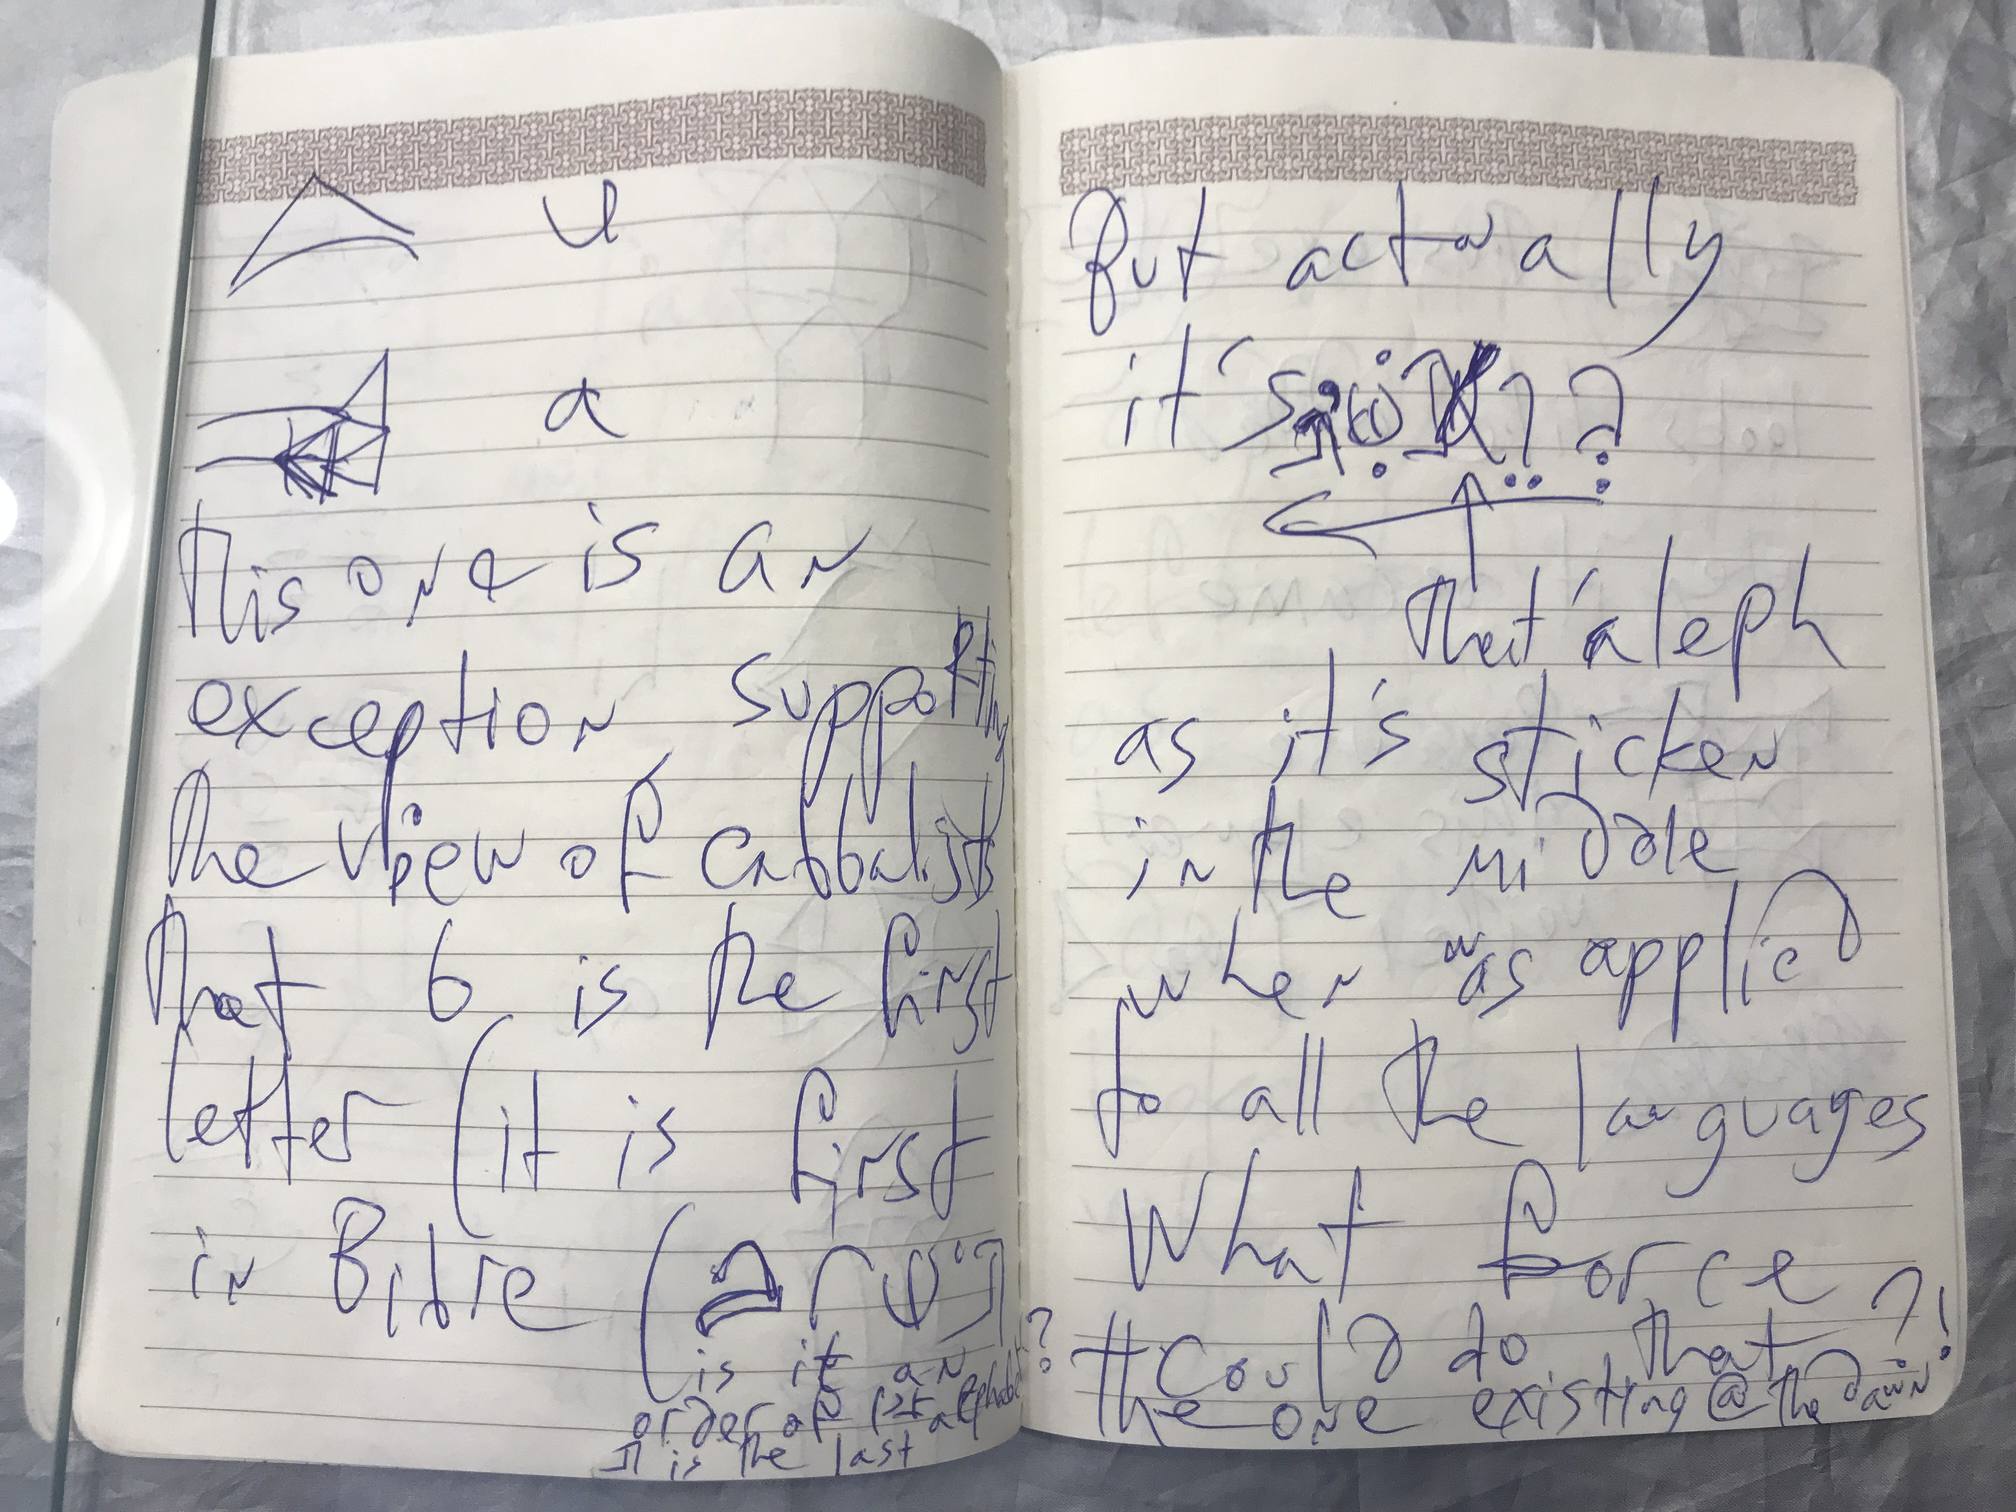 u
a
This one is an
exception supporting
the view of cabbalists
that 6 is the first
letter (it is first
in Bible (
is it an
order of 1st alphabet?
ת is the last
But actually
it's
that'aleph
as it's sticken
in the middle
when was applied
to all the languages
What force
could do that?!
the one existing @ the dawn